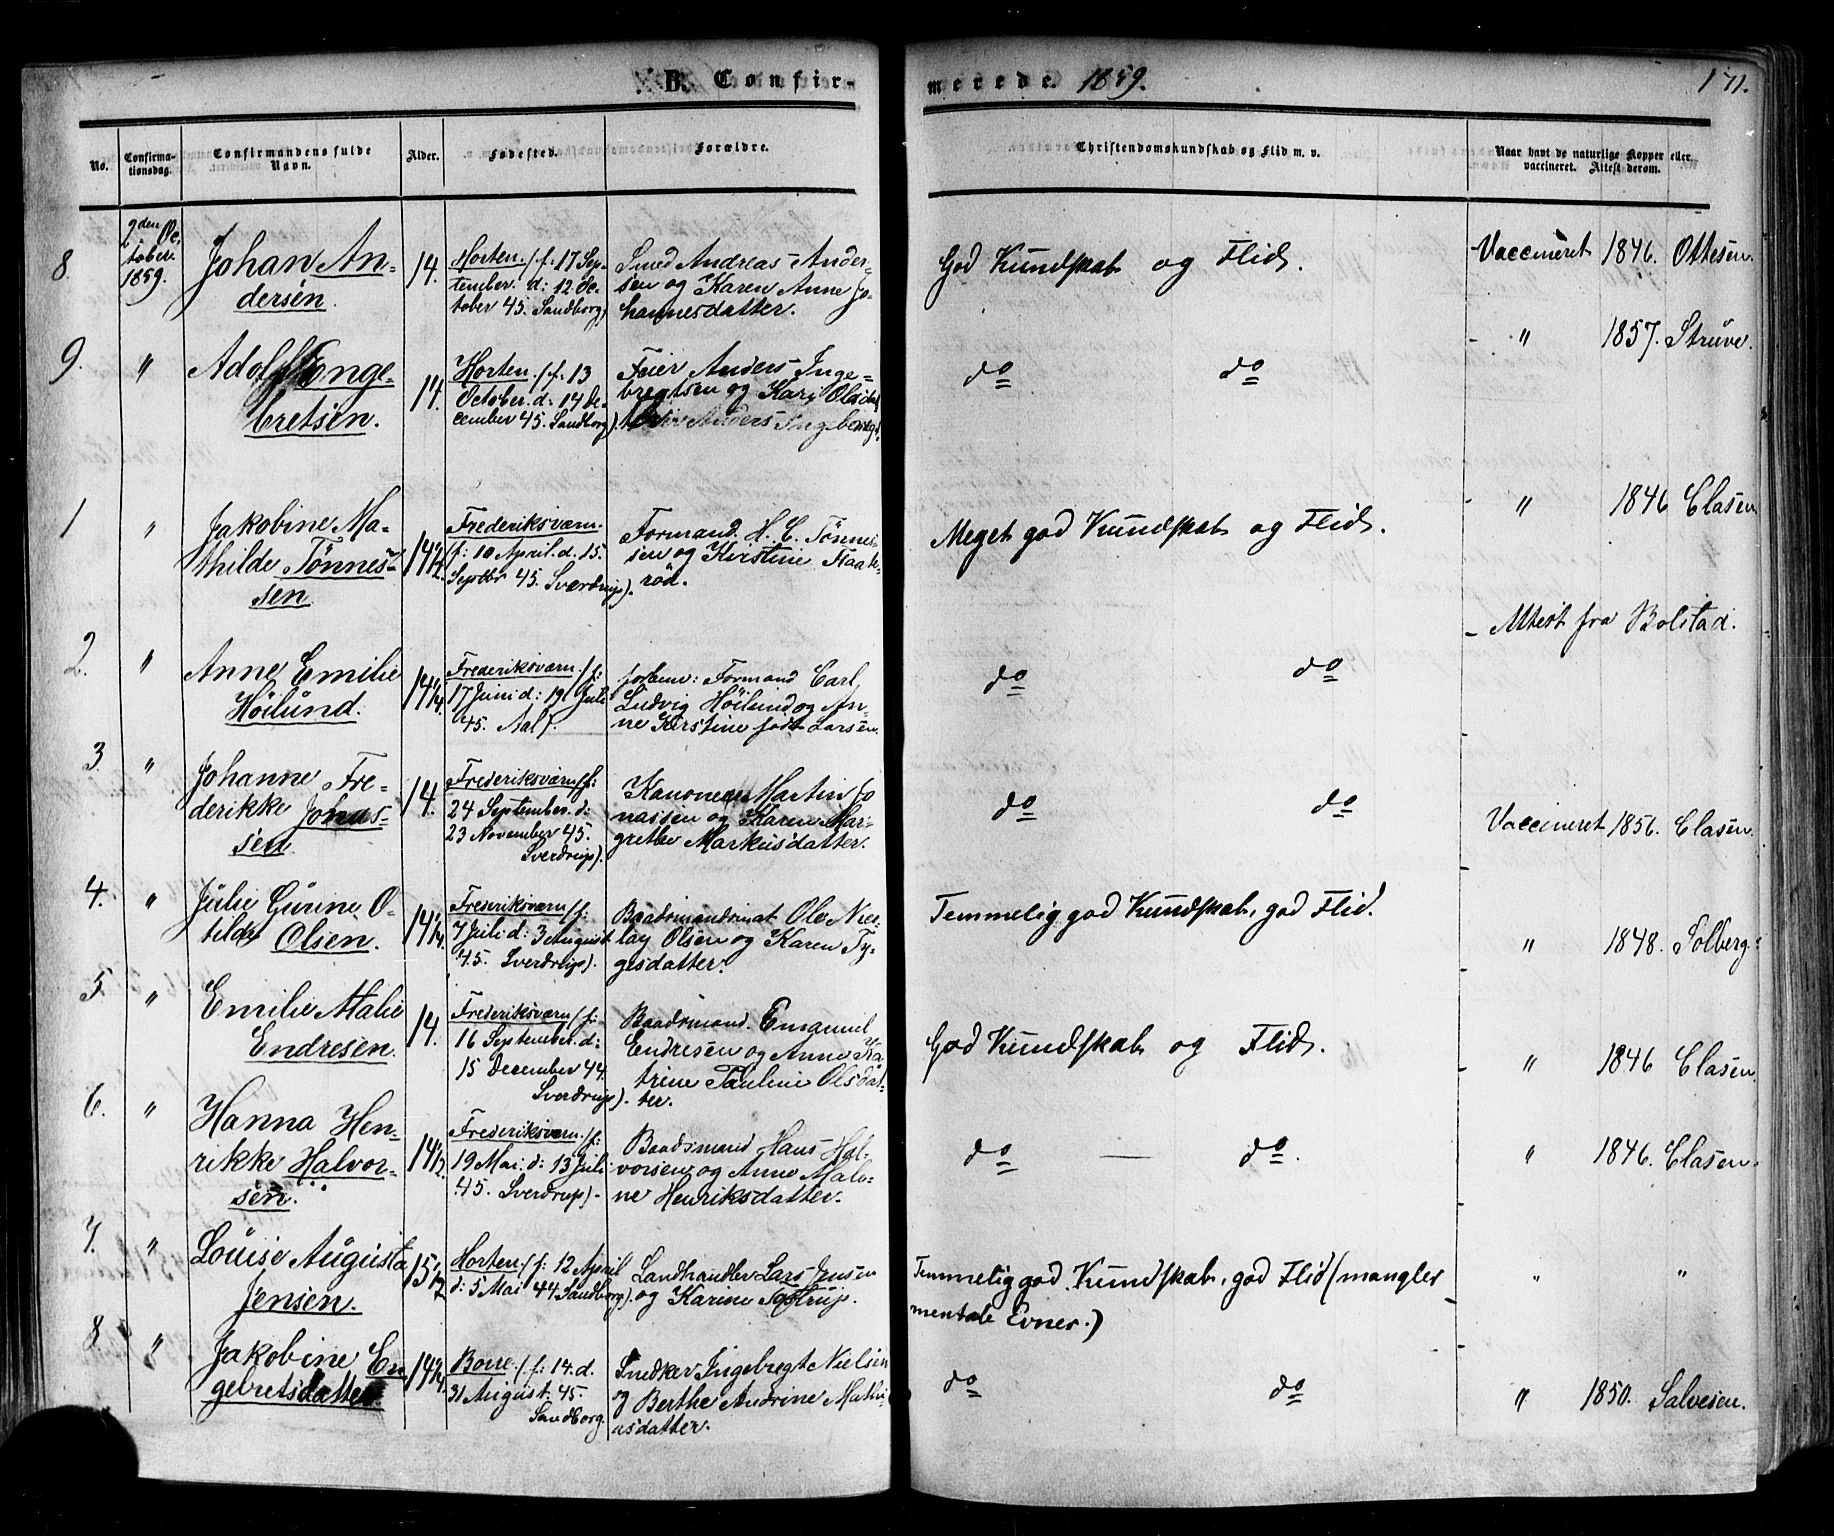 B. Confir-
merede. 1859.
171.
No.
Confirma-
tionsdag.
Confirmandens fulde
Navn.
Alder.
Fødested.
Forældre.
Christendomskundskab og Flid m. v.
Naar havt de naturlige Kopper eller
vaccineret. Attest derom.
8.
2den Oc-
tober.
1859.
Johan An-
dersen.
14.
Horten. (f. 17 Sep-
tember. d: 12 Oc-
tober 45. Sandborg)
Smed Andreas Ander-
sen og Karen Anne Jo-
hannesdatter.
God Kundskab og Flid.
Vaccineret 1846. Ottesen.
9.
"
Adolf Enge-
bretsen.
14.
Horten. (f. 13
October. d: 14 De-
cember 45. Sandborg).
Feier Anders Inge-
bregtsen og Kari Olsdat
Anders Ingebregt
do do
" 1857. Struve.
1
"
Jakobine Ma-
thilde Tønnes-
sen
14 1/2
Frederiksværn.
(f: 10 April. d. 15.
Septbr 45. Sverdrup).
Formand. H. C. Tønnes-
sen og Kirstine Haake-
rød.
Meget god Kundskab og Flid.
" 1846 Clasen.
2.
"
Anne Emilie
Höilund.
14 1/4
Frederiksværn (f:
17 Juni d: 19 Juli
45. Aal).
forhenv: Formand Carl
Ludvig Höilund og An-
ne Kirstine født Larsen.
do do
Attest fra Bolstad.
3.
"
Johanne Fre-
derikke Jonas-
sen
14.
Frederiksværn (f:
24 September. d:
23 November 45.
Sverdrup).
Kanoneer Martin Jo
nassen og Karen Mar-
grethe Markusdatter.
do do
Vaccineret 1856. Clasen.
4.
"
Julie Gurine O-
tilde Olsen.
14 1/4
Frederiksværn (f:
7 Juli d: 3 August
45. Sverdrup).
Baadsmandsmat Ole Nico-
lay Olsen og Karen Ty-
gesdatter.
Temmelig god Kundskab, god Flid.
" 1848. Solberg.
5.
"
Emilie Malie
Endresen.
14.
Frederiksværn (f:
16 September. d:
15 December 44.
Sverdrup).
Baadsmand. Emanuel
Endresen og Anne Ka
trine Pauline Olsdat-
ter.
God Kundskab og Flid.
" 1846 Clasen.
6.
"
Hanna Hen-
rikke Halvor-
sen.
14 1/2
Frederiksværn (f:
19 Mai. d: 13 Juli
45. Sverdrup).
Baadsmand Hans Hal-
vorsen og Anne Male-
ne Henriksdatter.
do — do.
" 1846. Clasen.
7.
"
Louise Augusta
Jensen.
15 1/2
Horten (f. 12 April
d: 5 Mai 44 Sandborg).
Landhandler Lars Jensen
og Karine Tostrup.
Temmelig god Kundskab, god Flid (mangler
mentale Evner.)
" "
8.
"
Jakobine En
gebretsdatter
14 1/4
Borre. (f: 14. d.
31 August. 45.
Sandborg.
Snedker Ingebregt Nielsen
og Berthe Andrine Mathi-
asdatter.
do do
" 1850. Salvesen.